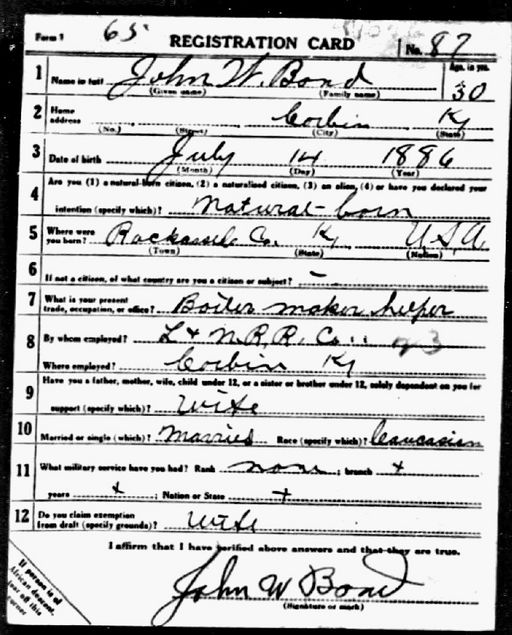 Form 1 65 REGISTRATION CARD No. 87
1 Name in full John W. Bond Age, in yrs. 30
(Given name) (Family name)
2 Home address Corbin Ky
(No.) (Street) (City) (State)
3 Date of birth July 14 1886
(Month) (Day) (Year)
4 Are you (1) a natural-born citizen, (2) a naturalized citizen, (3) an alien, (4) or have you declared your
intention (specify which)? Natural-born
5 Where were you born? Rockassel Co. Ky U.S.A.
(Town) (State) (Nation)
6 If not a citizen, of what country are you a citizen or subject? –
7 What is your present trade, occupation, or office? Boiler maker helper
8 By whom employed? L & N. R. R. Co. 23
Where employed? Corbin Ky
9 Have you a father, mother, wife, child under 12, or a sister or brother under 12, solely dependent on you for
support (specify which)? Wife
10 Married or single (which)? Married Race (specify which)? Caucasian
11 What military service have you had? Rank none ; branch +
years + ; Nation or State +
12 Do you claim exemption from draft (specify grounds)? Wife
I affirm that I have verified above answers and that they are true.
John W Bond
(Signature or mark)
If person is of
African descent,
tear off this
corner